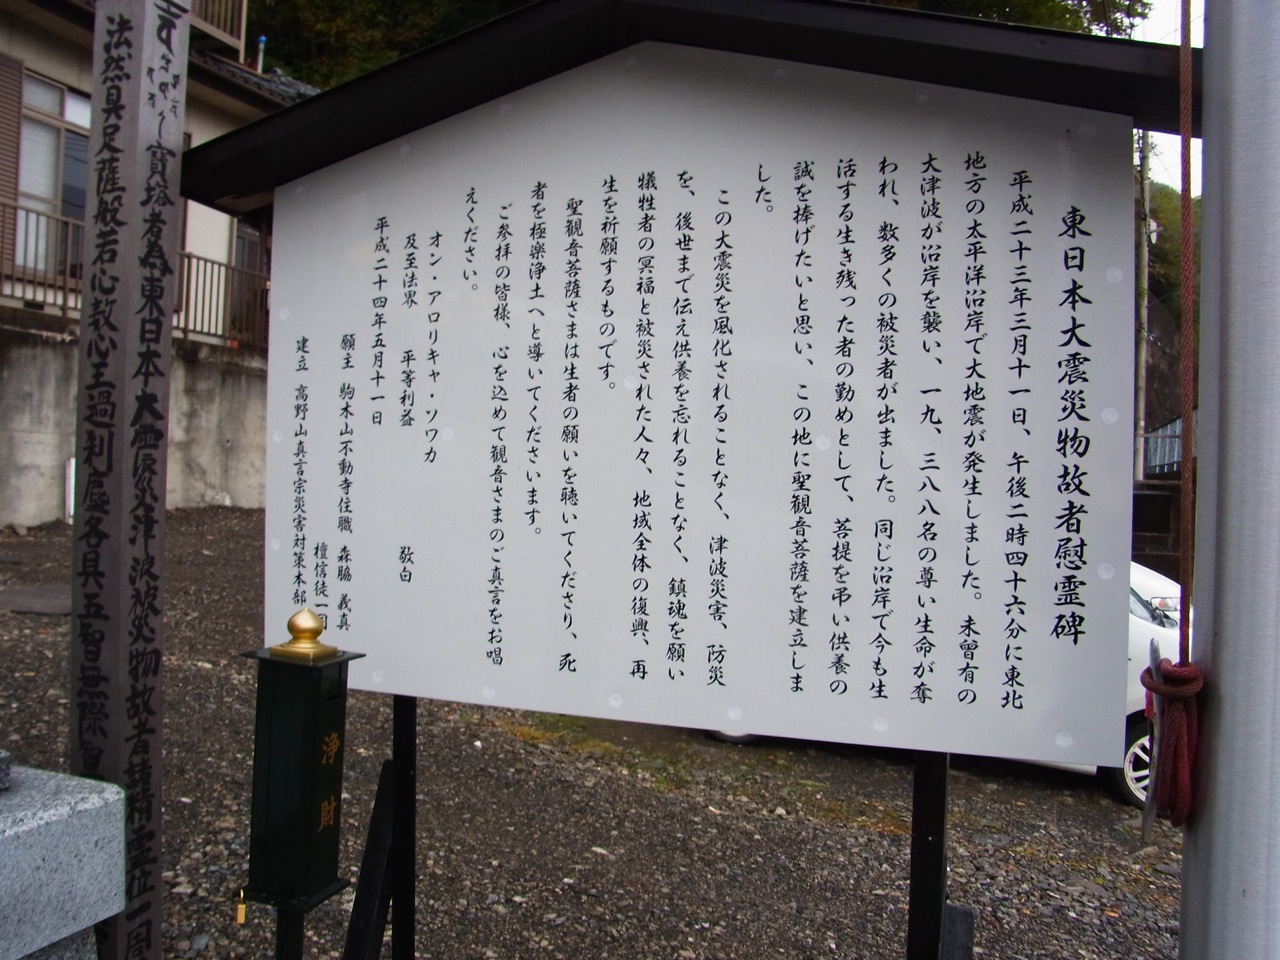 東日本大震災物故者慰霊碑
平成二十三年三月十一日、午後二時四十六分に東北
地方の太平洋沿岸で大地震が発生しました。未曾有の
大津波が沿岸を襲い、一九、三八八名の尊い生命が奪
われ、数多くの被災者が出ました。同じ沿岸で今も生
活する生き残った者の勤めとして、菩提を弔い供養の
誠を捧げたいと思い、この地に聖観音菩薩を建立しま
した。
この大震災を風化されることなく、津波災害、防災
を、後世まで伝え供養を忘れることなく、鎮魂を願い
犠牲者の冥福と被災された人々、地域全体の復興、再
生を祈願するものです。
聖観音菩薩さまは生者の願いを聴いてくださり、死
者を極楽浄土へと導いてくださいます。
ご参拝の皆様、心を込めて観音さまのご真言をお唱
えください。
オン・アロリキャ・ソワカ
及至法界 平等利益 敬白
平成二十四年五月十一日
願主 駒木山不動寺住職 森脇 義真
檀信徒一同
建立 高野山真言宗災害対策本部
浄財
寶塔者為東日本大震災津波被災物故者諸精霊位一周
法然具足薩般若心数心王過刹塵各具五智無際智